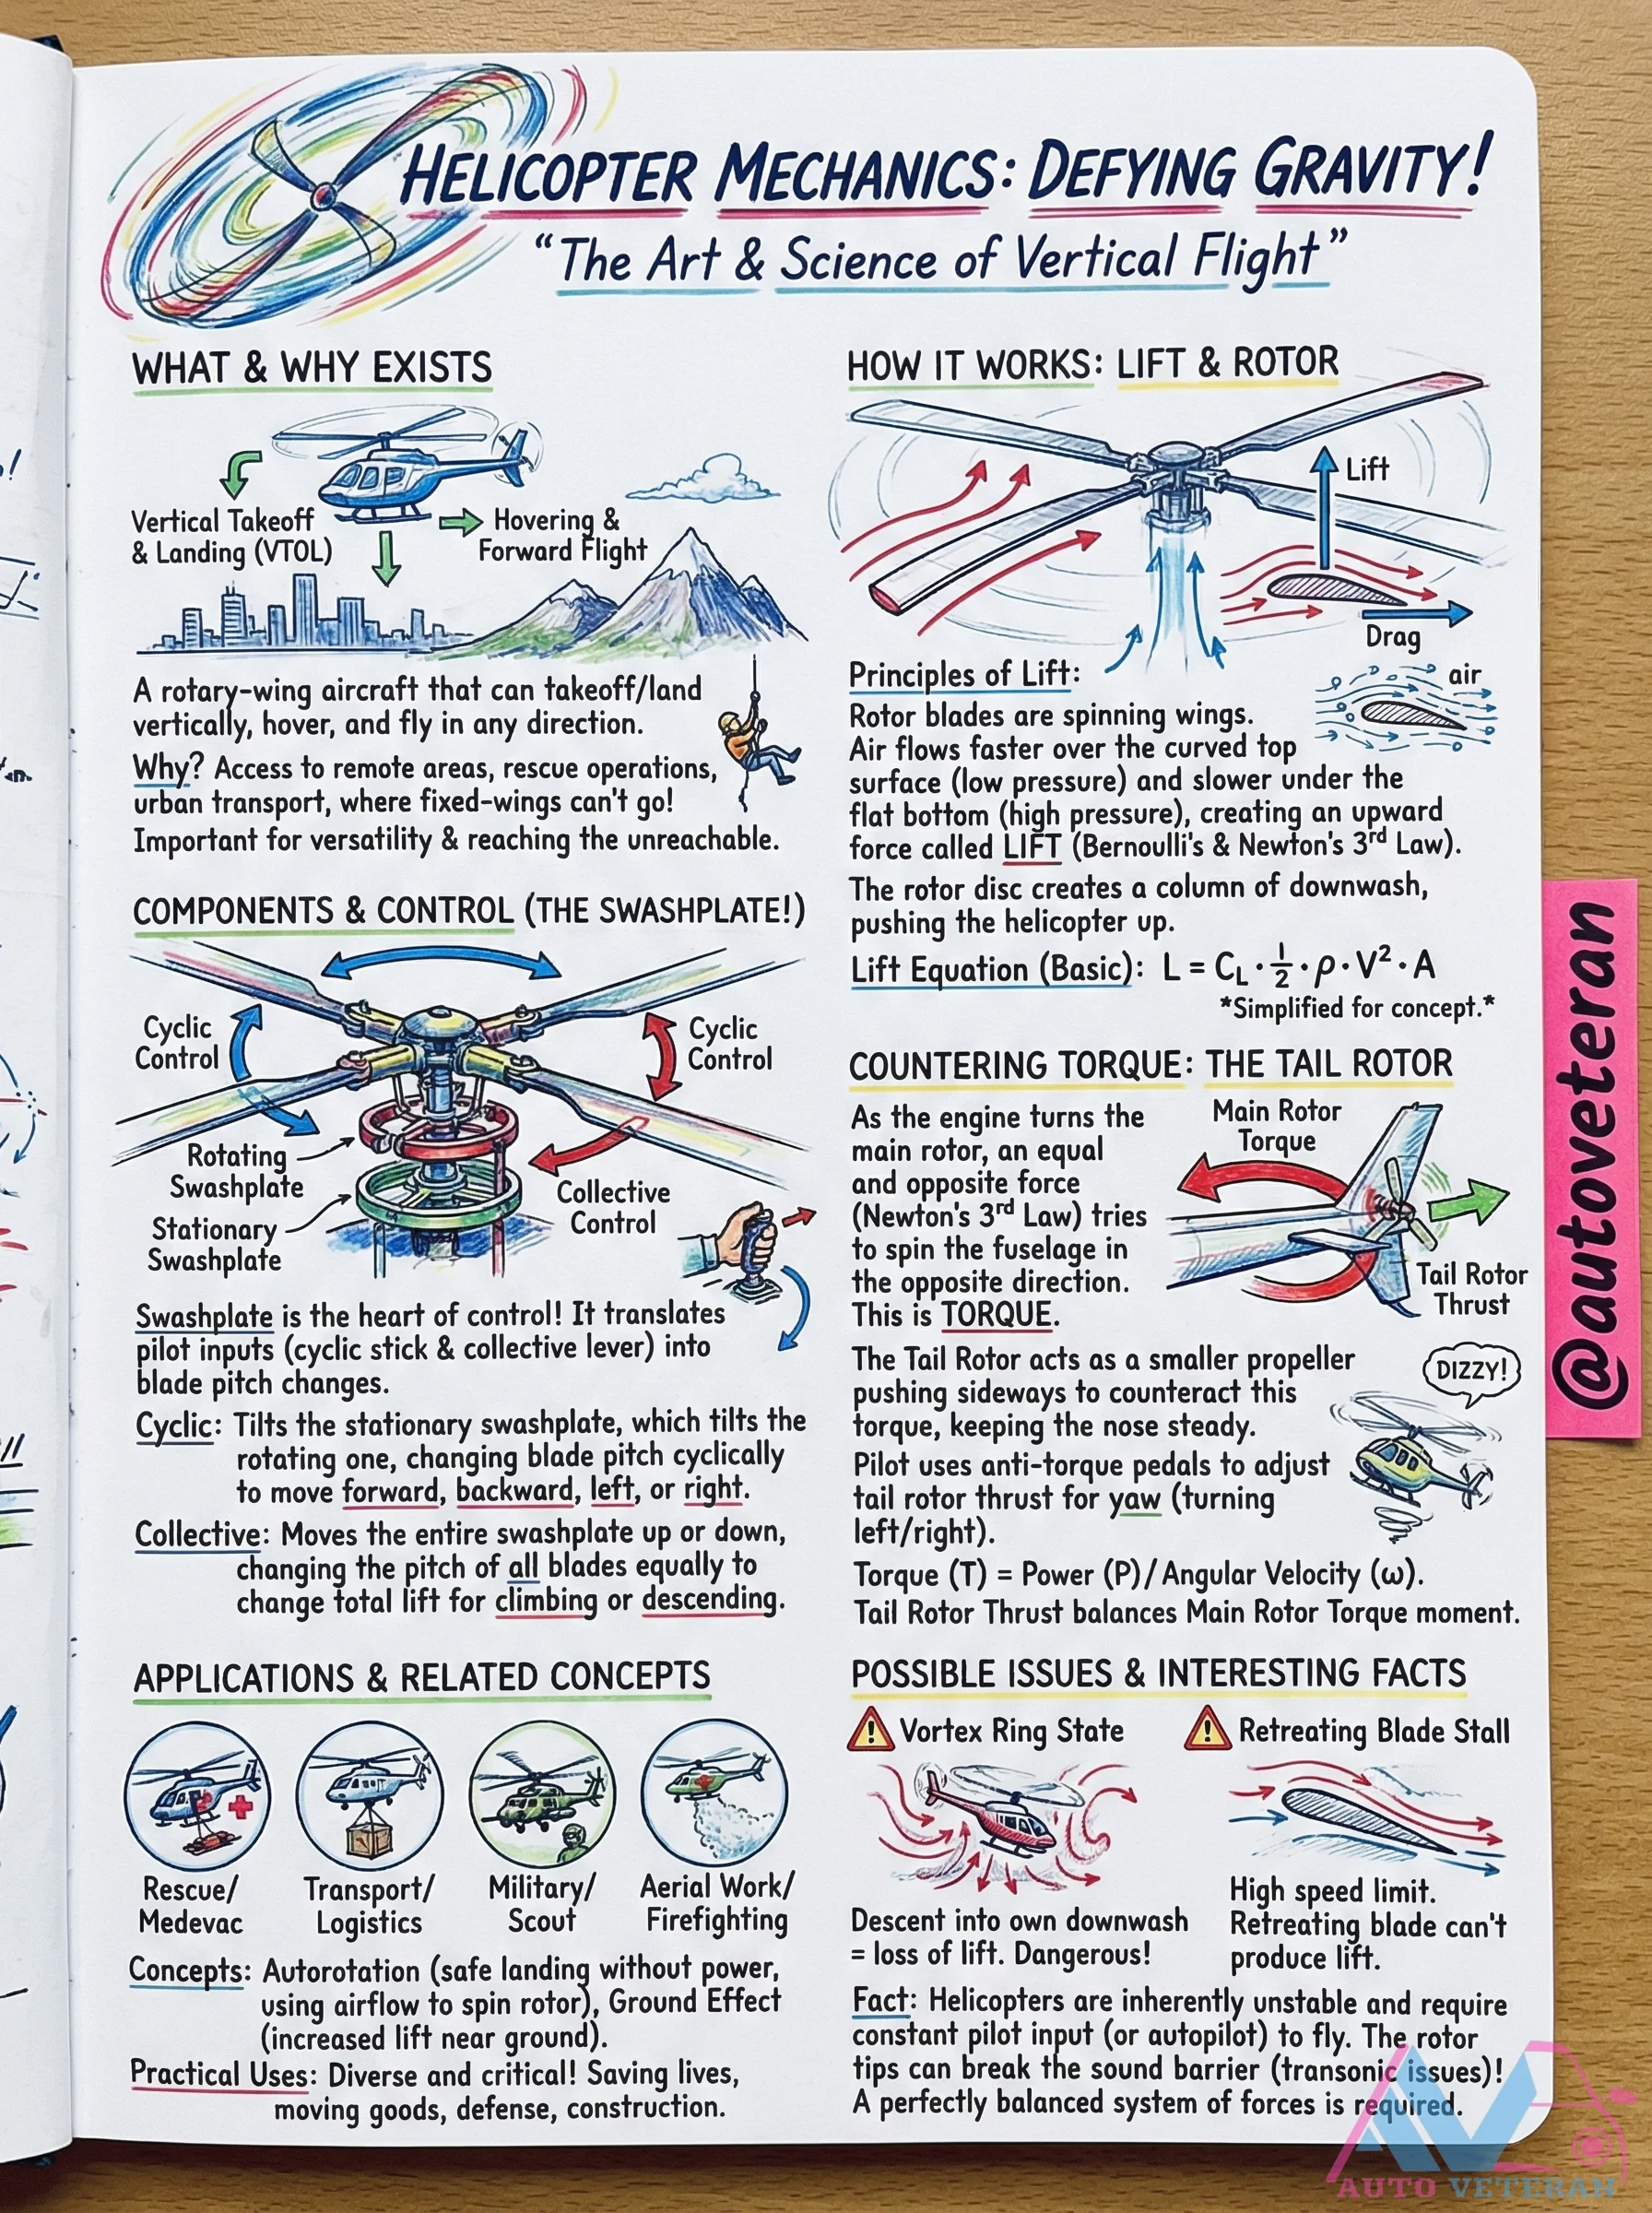 HELICOPTER MECHANICS: DEFYING GRAVITY!
"The Art & Science of Vertical Flight"
WHAT & WHY EXISTS
Vertical Takeoff
& Landing (VTOL)
Hovering &
Forward Flight
A rotary-wing aircraft that can takeoff/land
vertically, hover, and fly in any direction.
Why? Access to remote areas, rescue operations,
urban transport, where fixed-wings can't go!
Important for versatility & reaching the unreachable.
COMPONENTS & CONTROL (THE SWASHPLATE!)
Cyclic
Control
Cyclic
Control
Rotating
Swashplate
Stationary
Swashplate
Collective
Control
Swashplate is the heart of control! It translates
pilot inputs (cyclic stick & collective lever) into
blade pitch changes.
Cyclic: Tilts the stationary swashplate, which tilts the
rotating one, changing blade pitch cyclically
to move forward, backward, left, or right.
Collective: Moves the entire swashplate up or down,
changing the pitch of all blades equally to
change total lift for climbing or descending.
APPLICATIONS & RELATED CONCEPTS
Rescue/
Medevac
Transport/
Logistics
Military/
Scout
Aerial Work/
Firefighting
Concepts: Autorotation (safe landing without power,
using airflow to spin rotor), Ground Effect
(increased lift near ground).
Practical Uses: Diverse and critical! Saving lives,
moving goods, defense, construction.
HOW IT WORKS: LIFT & ROTOR
Lift
Drag
air
Principles of Lift:
Rotor blades are spinning wings.
Air flows faster over the curved top
surface (low pressure) and slower under the
flat bottom (high pressure), creating an upward
force called LIFT (Bernoulli's & Newton's 3rd Law).
The rotor disc creates a column of downwash,
pushing the helicopter up.
Lift Equation (Basic): L = CL · 1/2 · ρ · V² · A
*Simplified for concept.*
COUNTERING TORQUE: THE TAIL ROTOR
As the engine turns the
main rotor, an equal
and opposite force
(Newton's 3rd Law) tries
to spin the fuselage in
the opposite direction.
This is TORQUE.
Main Rotor
Torque
Tail Rotor
Thrust
The Tail Rotor acts as a smaller propeller
pushing sideways to counteract this
torque, keeping the nose steady.
DIZZY!
Pilot uses anti-torque pedals to adjust
tail rotor thrust for yaw (turning
left/right).
Torque (T) = Power (P)/Angular Velocity (ω).
Tail Rotor Thrust balances Main Rotor Torque moment.
POSSIBLE ISSUES & INTERESTING FACTS
Vortex Ring State
Descent into own downwash
= loss of lift. Dangerous!
Retreating Blade Stall
High speed limit.
Retreating blade can't
produce lift.
Fact: Helicopters are inherently unstable and require
constant pilot input (or autopilot) to fly. The rotor
tips can break the sound barrier (transonic issues)!
A perfectly balanced system of forces is required.
@autoveteran
AUTO VETERAN